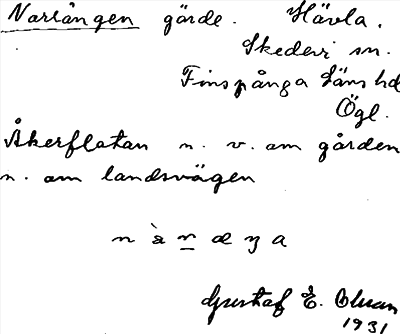 Narlången gärde. Hävla.
Skedevi sn.
Finspånga läns hd
Ögl.
Åkerflatan n. v. om gården
n. om landsvägen
Gustaf E.
1931